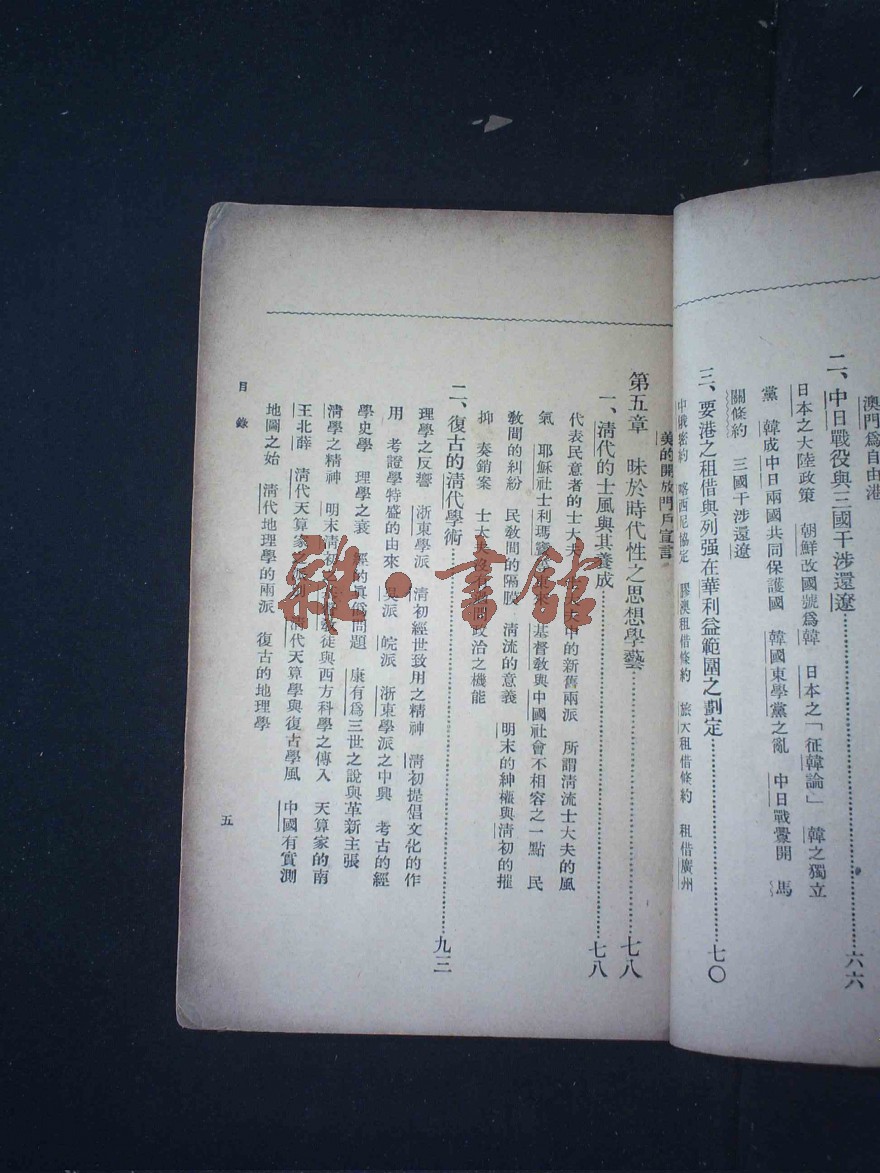 澳門爲自由港
二、中日戰役與三國干涉還遼⋯⋯六六
日本之大陸政策　朝鮮改國號爲韓　日本之「征韓論」　韓之獨立
黨　韓成中日兩國共同保護國　韓國東學黨之亂　中日戰釁開　馬
關條約　三國干涉還遼
三、要港之租借與列强在華利益範圍之劃定⋯⋯七〇
中俄密約　喀西尼協定　膠澳租借條約　旅大租借條約　租借廣州
美的開放門戶宣言
第五章　昧於時代性之思想學藝⋯⋯七八
一、清代的士風與其養成⋯⋯七八
代表民意者的士大夫　士大夫中的新舊兩派　所謂清流士大夫的風
氣　耶穌社士利瑪竇　基督敎與中國社會不相容之一點　民
敎間的糾紛　民敎間的隔膜　清流的意義　明末的紳權與清初的摧
抑　奏銷案　士大夫沒有過問政治之機能
二、復古的清代學術⋯⋯九三
理學之反響　浙東學派　清初經世致用之精神　清初提倡文化的作
用　考證學特盛的由來　吳派　皖派　浙東學派之中興　考古的經
學史學　理學之衰　經的眞僞問題　康有爲三世之說與革新主張
清學之精神　明末清初之　敎徒與西方科學之傳入　天算家的南
王北薛　清代天算家之派別　清代天算學與復古學風　中國有實測
地圖之始　清代地理學的兩派　復古的地理學
目錄
五
雜·書館